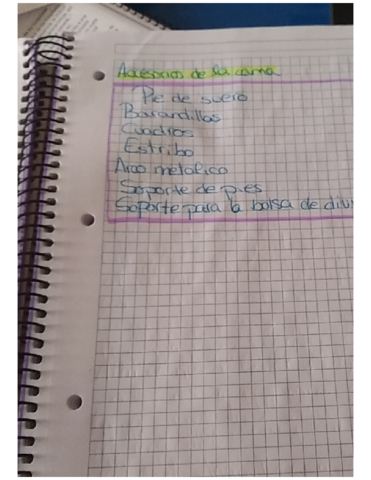 Accesorios de la cama
Pie de suero
Barandillas
Cuadros
Estribo
Arco metalico
Soporte de pies
Soporte para la bolsa de diu